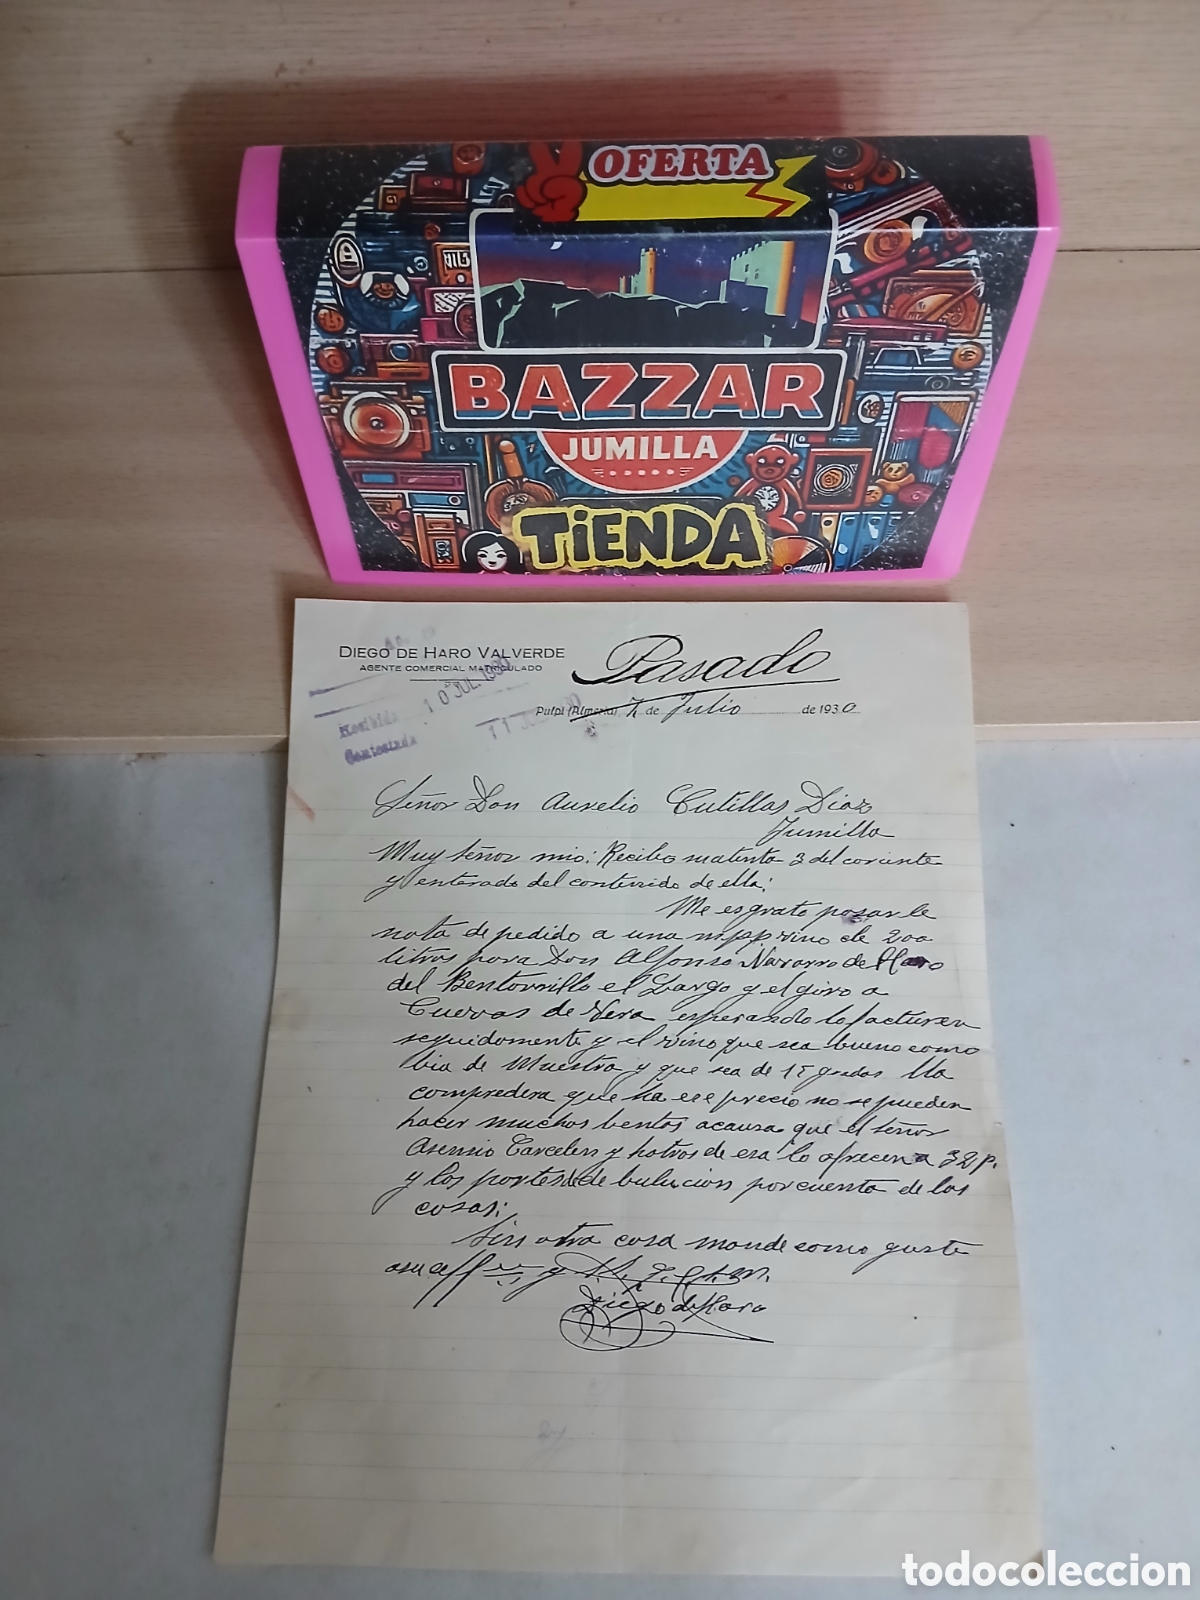 OFERTA
BAZZAR
JUMILLA
TiENDA
DIEGO DE HARO VALVERDE
AGENTE COMERCIAL MATRICULADO
Pasado
10 JUL. 1930
Pulpí (Almería) 7 de Julio de 1930
Recibida
Contestada
11
Señor Don Aurelio Cutillas Diaz
Jumilla
Muy señor mio: Recibo su atenta 3 del corriente
y enterado del contenido de ella:
Me es grato pasar le
nota de pedido a una vino de 200
litros para Don Alfonso Navarro de Haro
del Bentorrillo el Largo y el giro a
Cuevas de Vera esperando lo facturen
seguidamente y el vino que sea bueno como
bia de Muestra y que sea de 15 grados Ua
compredera que ha ese precio no se pueden
hacer muchos bentos acausa que el señor
Asensio Carcelen y hotros de esa lo ofrecen a 32 p.
y los portes de debulucion por cuenta de las
casas;
Sin otra cosa mande como guste
a su aff y S. S. q. e. s. m.
Diego de Haro
todocoleccion